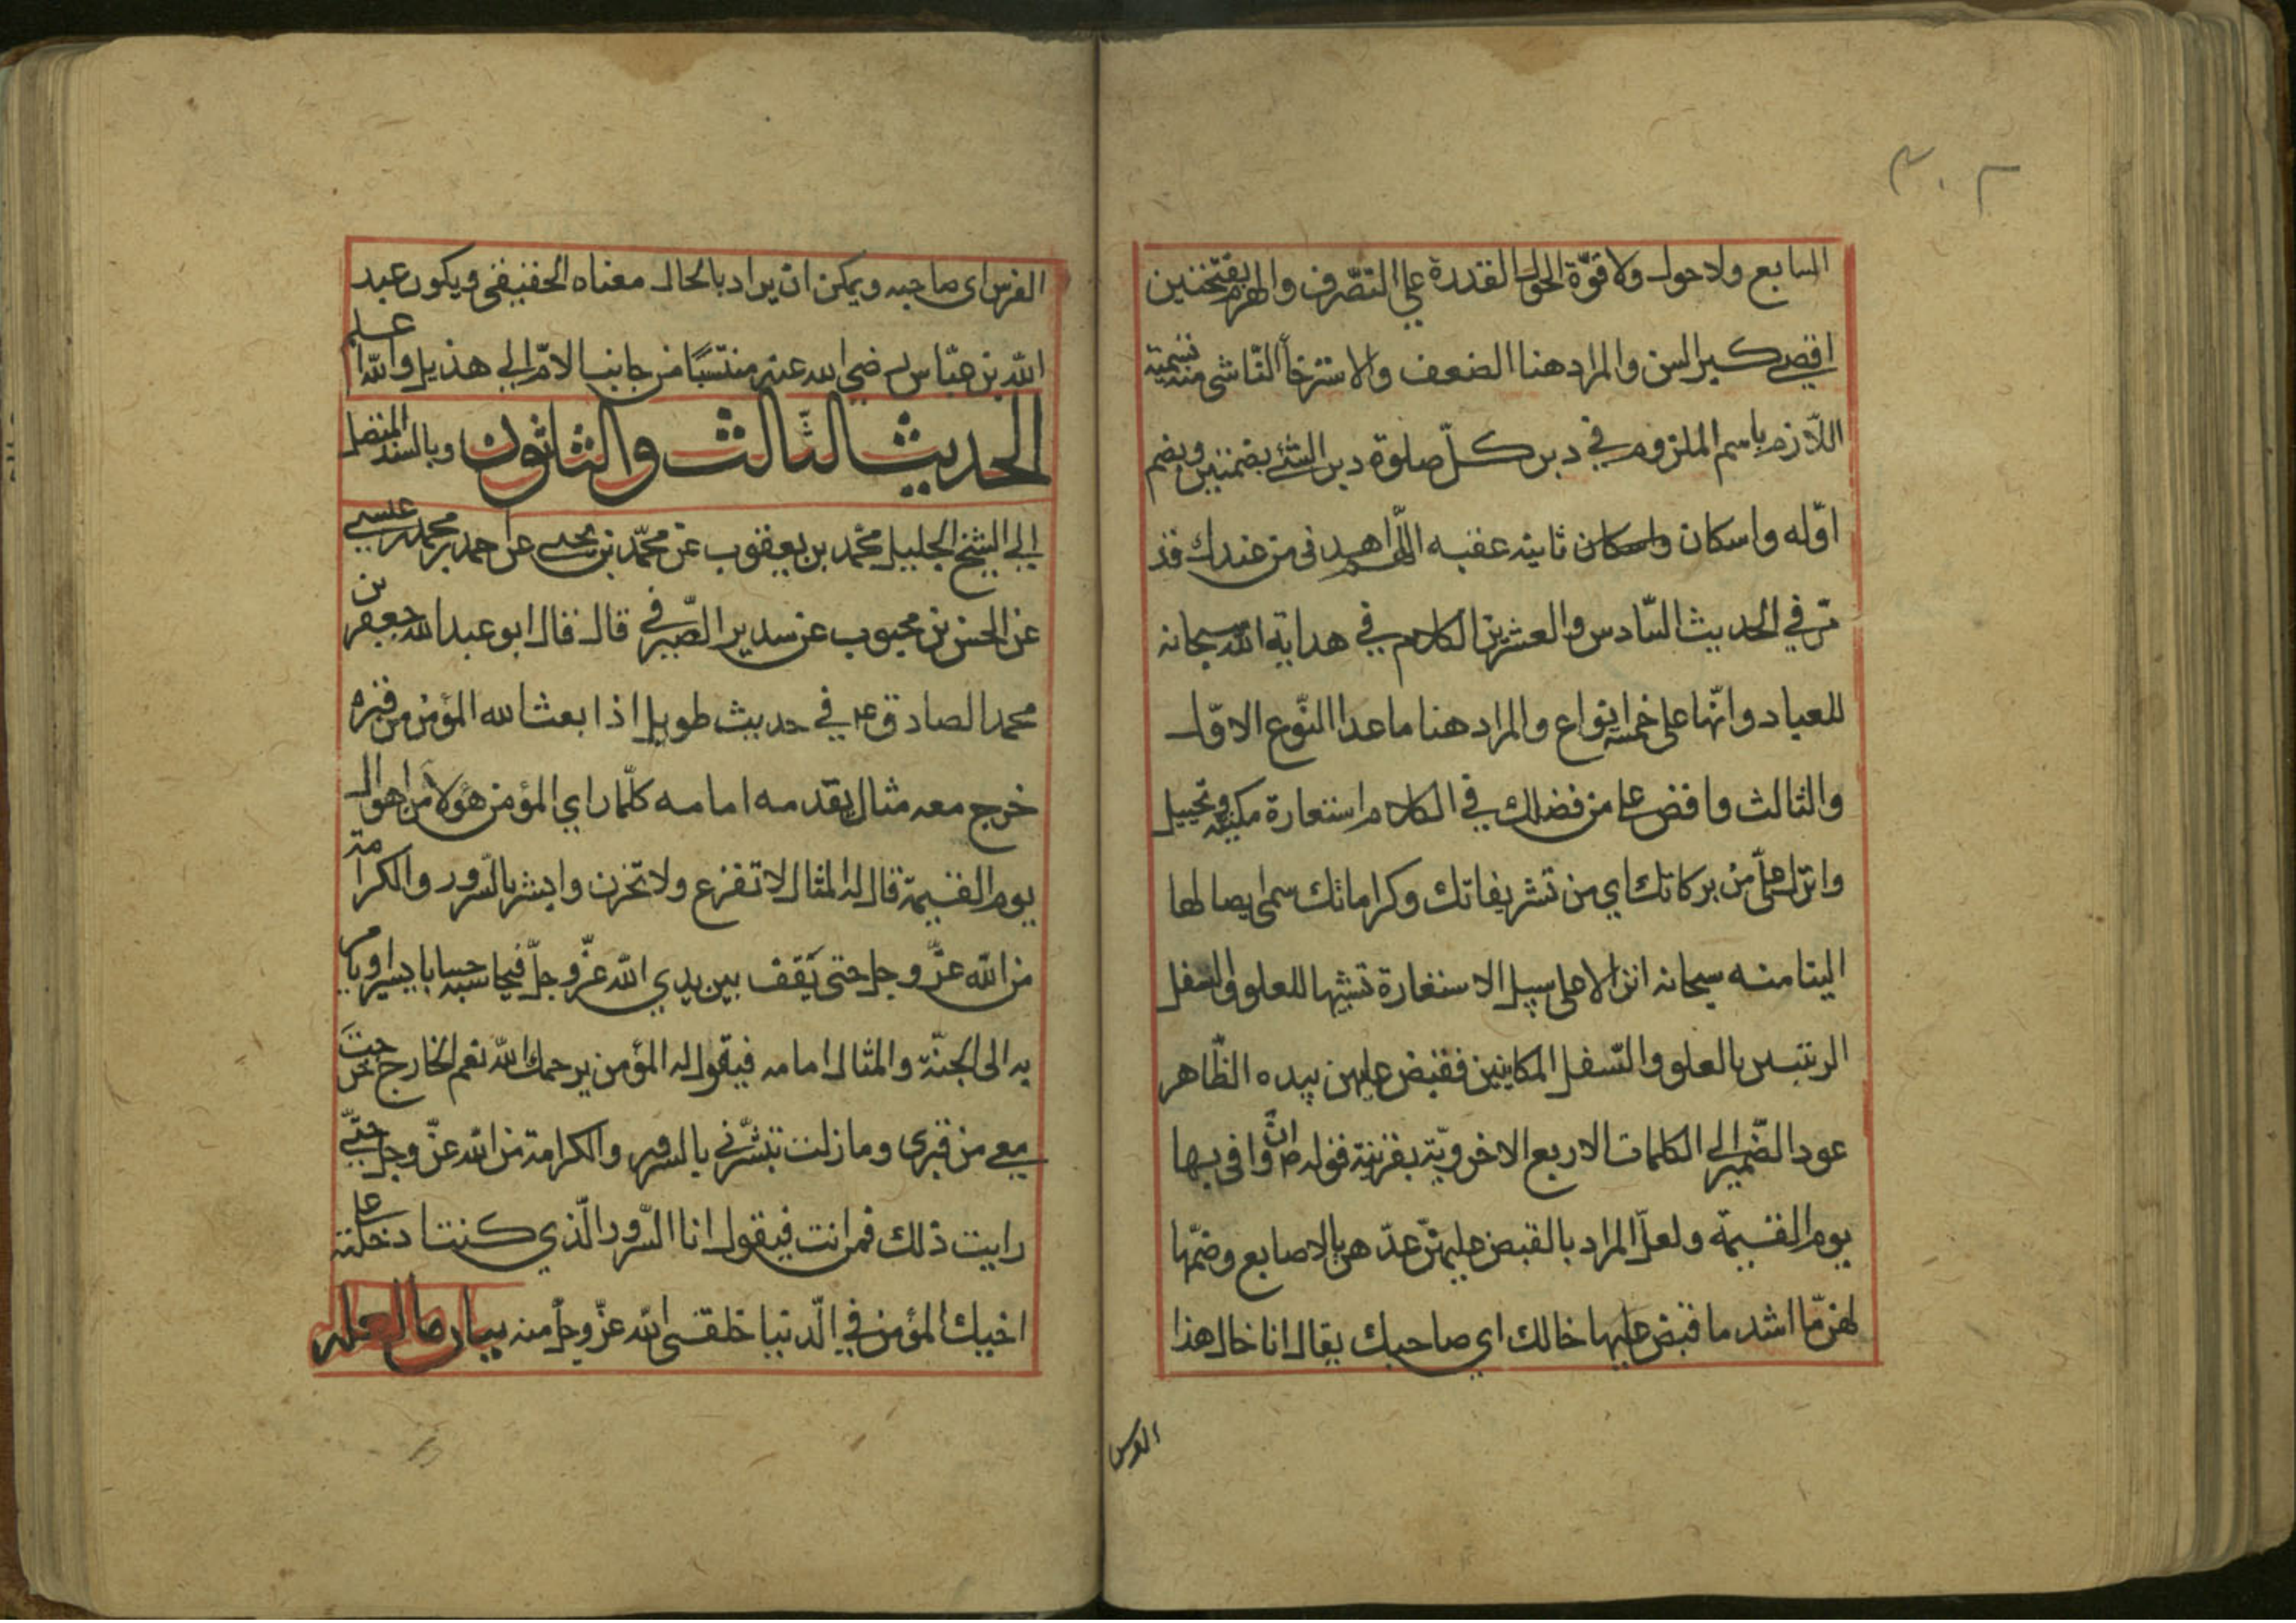 ٣٠٢
السابع ولا حول ولا قوّة الحول القدرة علي التصّرف والهرم بفتحتين
اقصي كبر السن والمراد هنا الضعف والاسترخاء النّاشي منه تسمية
اللّازم باسم الملزوم في دبر كلّ صلوة دبر الشئ بضمتين وبضم
اوّله واسكان واسكان ثانيه عقبه اللّهم اهدنى من عندك قد
مّر في الحديث السّادس والعشرين الكلام في هداية الله سبحانه
للعباد وانّها على خمسة انواع والمراد هنا ما عدا النّوع الاوّل
والثالث وافض على من فضلك في الكلام استعارة مكنية وتخييل
وانزل علىّ من بركاتك اي من تشريفاتك وكراماتك سمى ايصالها
الينا منه سبحانه انزالا على سبيل الاستعارة تشبيها للعلو والسفل
الرتبيين بالعلو والتسفل المكانيين فقبض عليهن بيده الظّاهر
عود الضّمير الى الكلمات الاربع الاخرويّة بقرنية قوله ص ان وافى بها
يوم القيمة ولعلّ المراد بالقبض عليهنّ عدّهن بالاصابع وضمّها
لهنّ ما اشد ما قبض عليها خالك اي صاحبك يقال انا خال هذا
الفرس
الفرس اى صاحبه ويمكن ان يراد بالخال معناه الحقيقى ويكون عبد
الله بن عبّاس رضي الله عنه منتسبًا من جانب الامّ الي هذيل والله اعلم
الحديث الثّالث والثلثون وبالسند المتصل
الي الشيخ الجليل محمّد بن يعقوب عن محمّد بن يحيى عن احمد بن محمد بن عيسي
عن الحسن بن محبوب عن سدير الصّيرفي قال قال ابو عبد الله جعفر بن
محمد الصادق ع في حديث طويل اذا بعث الله المؤمن من قبره
خرج معه مثال يقدمه امامه كلّما راي المؤمن هولا من اهوال
يوم القيمة قال له المثال لا تفزع ولا تحزن وابشر بالسّرور والكرامة
من الله عزّ وجل حتى يَقف بين يدي الله عزّ وجلّ فيحاسبه حسابا يسيرا ويامر
به الى الجنّة والمثال امامه فيقول له المؤمن يرحمك الله نعم الخارج خرجت
معي من قبرى وما زلت تبشّرني بالسرور والكرامة من الله عزّ وجل حتّي
رايت ذلك فمن انت فيقول انا السّرور الّذي كنت ادخلته على
اخيك المؤمن في الّدنيا خلقنى الله عزّ وجلّ منه بيان ما لعله